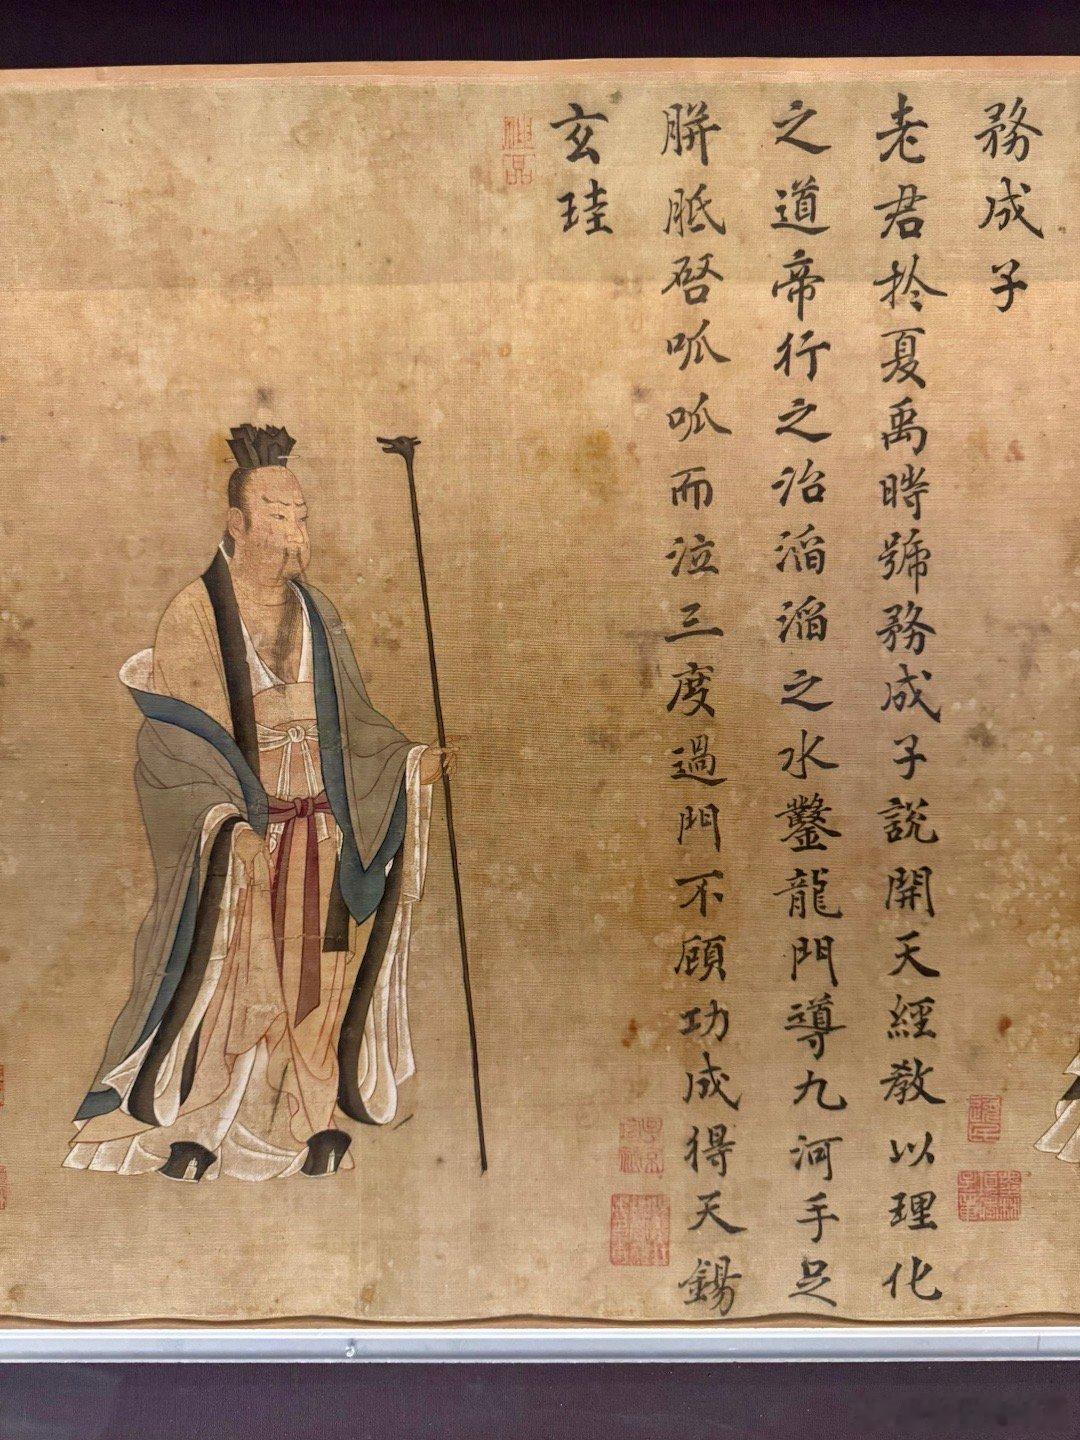 務成子
老君扵夏禹時號務成子說開天經教以理化
之道帝行之治滔滔之水鑿龍門導九河手足
胼胝啓呱呱而泣三度過門不顧功成得天錫
玄珪